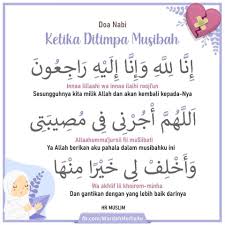 Doa Nabi
Ketika Ditimpa Musibah
إِنَّا لِلَّهِ وَإِنَّا إِلَيْهِ رَاجِعُونَ
Innaa lillaahi wa innaa ilaihi rooji'un
Sesungguhnya kita milik Allah dan akan kembali kepada-Nya
اَللَّهُمَّ أْجُرْنِي فِي مُصِيبَتِي
Allaahumma'jurnii fii mushiibatii
Ya Allah berikan aku pahala dalam musibahku ini
وَأَخْلِفْ لِي خَيْرًا مِنْهَا
Wa akhlif lii khoirom-minha
Dan gantikan dengan yang lebih baik darinya
HR MUSLIM